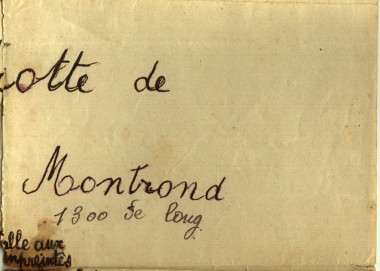 otte de
Montrond
1300 de long
alle aux
mpreintes